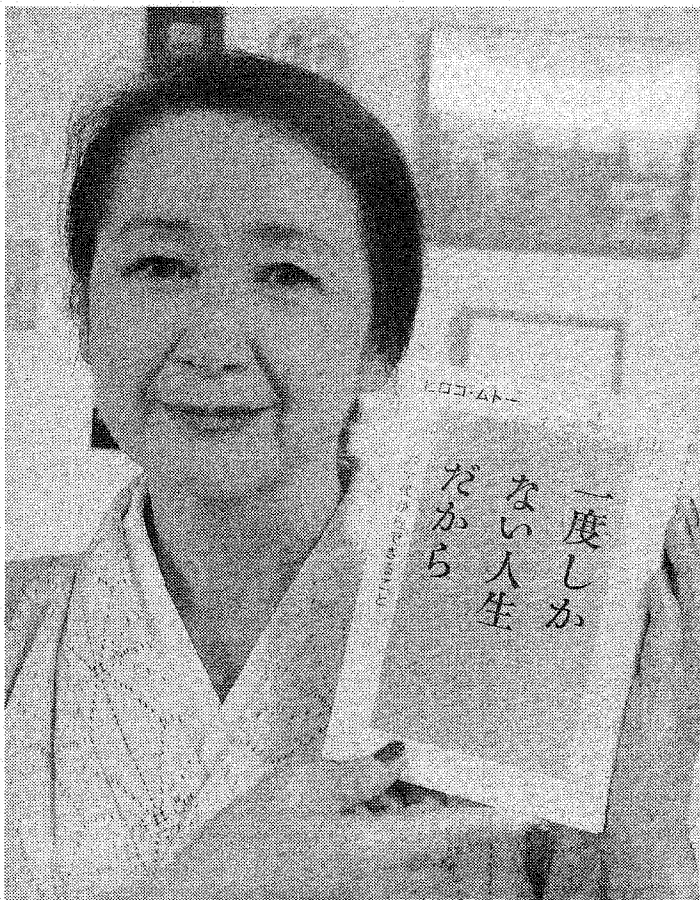 ヒロコ・ムトー
一度しか
ない人生
だから